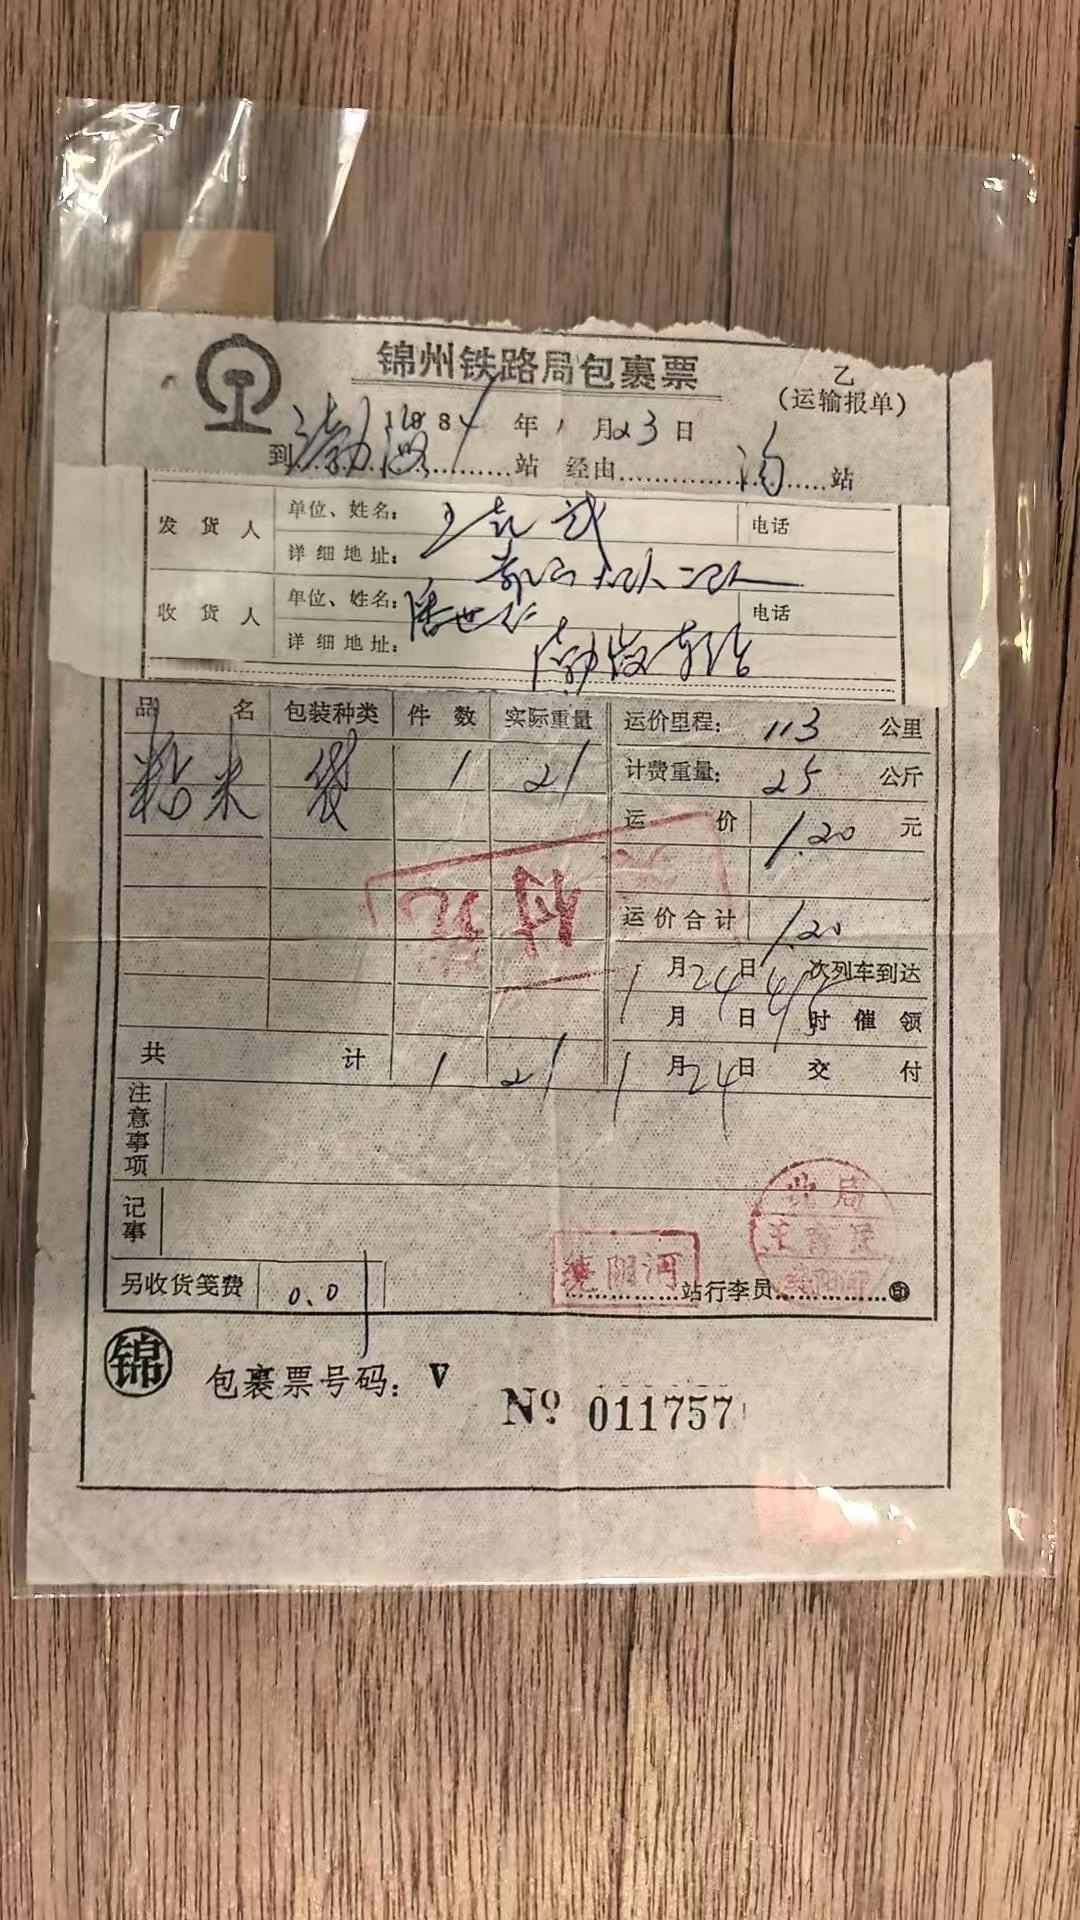 锦州铁路局包裹票
乙
(运输报单)
1984年1月23日
到渤海站 经由沟站
发货人 单位、姓名: 王 武 电话
详细地址: 二队
收货人 单位、姓名: 潘世 电话
详细地址: 渤海
品名 包装种类 件数 实际重量 运价里程: 113 公里
粘米 袋 1 21 计费重量: 25 公斤
运价 1.20 元
运价合计 1.20
1月24日 次列车到达
月 日 时催领
共计 1 21 1月24日 交付
注意事项
记事
北局
绕阳河 站行李员 印
另收货笺费 0.01
锦 包裹票号码: V
№ 011757